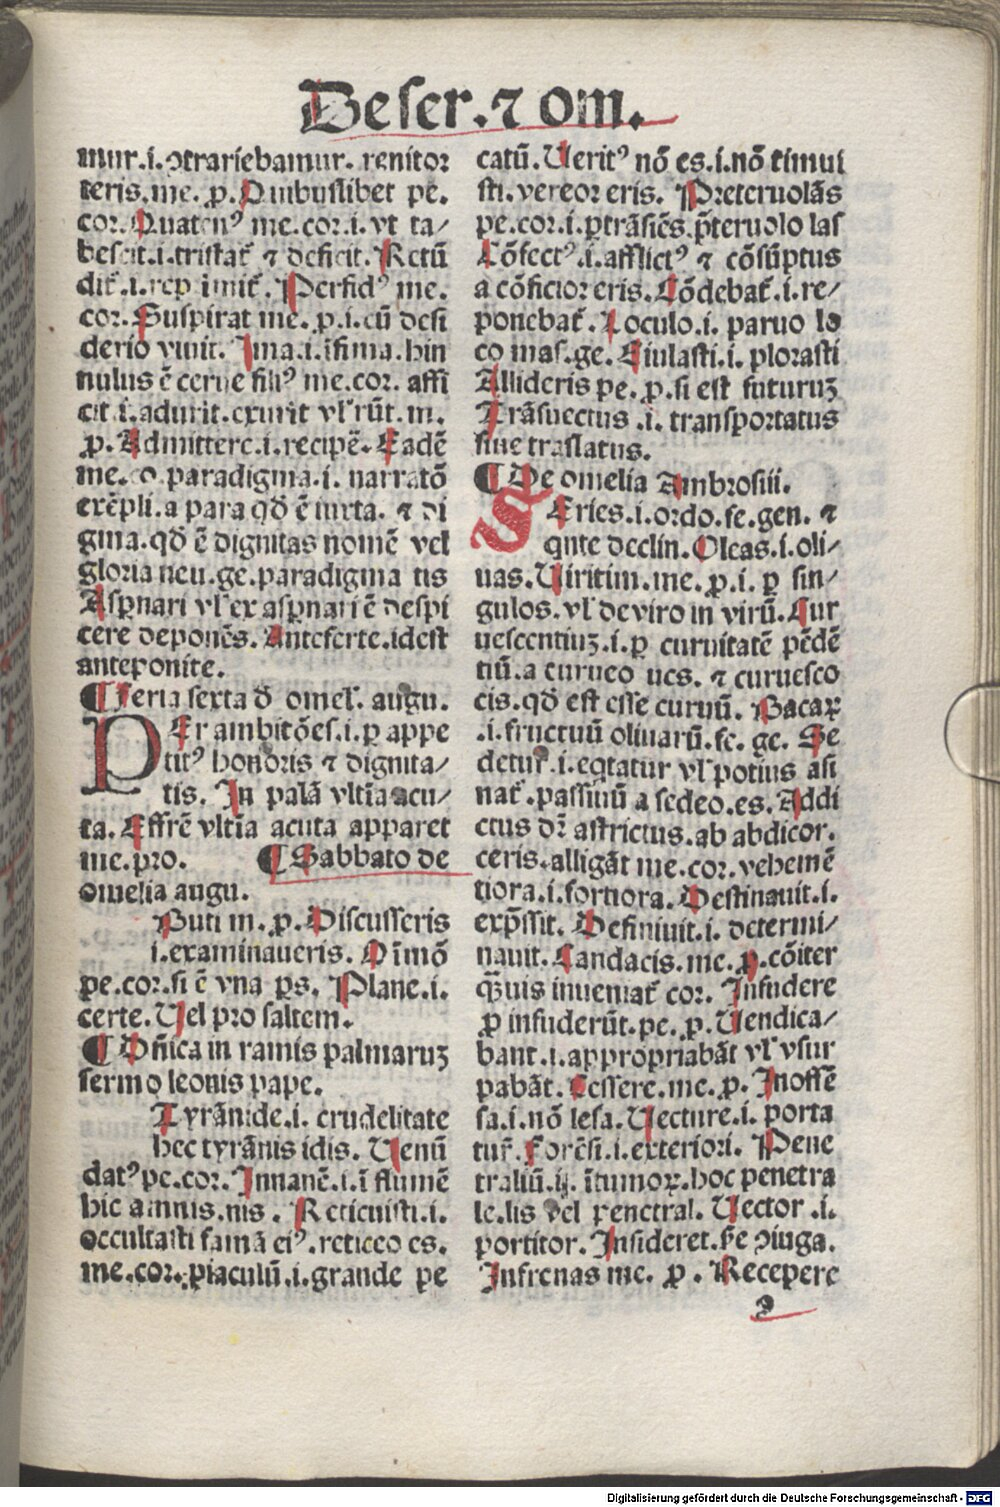 De ser. ⁊ om.
mur.i.ↄtrariebamur. renitor
teris.me. ꝓ. Quibuslibet pe.
cor. Quatenꝰ me.cor.i. vt ta/
bescit.i.tristat᷑ ⁊ deficit. Retū
dit᷑.i.reprimit᷑. Perfidꝰ me.
cor. Suspirat me. ꝓ.i.cū desi
derio viuit. Ima.i.īfima. hin
nulus ē cerue filiꝰ me.cor. affi
cit.i.adurit.exurit vl' rūt. m.
ꝓ. Admittere.i.recipē. Eadē
me.co. paradigma.i. narratō
exēpli.a para qd̄ ē iuxta. ⁊ di
gma.qd̄ ē dignitas nomē vel
gloria neu.ge.paradigma tis
Asꝑnari vl' ex asꝑnari ē despi
cere deponēs. Anteferte.idest
anteponite.
¶ Feria sexta d̄ omel'. augu.
PEr ambitōes.i.ꝑ appe
titꝰ honoris ⁊ dignita/
tis. In palā vltīa acu/
ta. Effrē vltīa acuta apparet
me.pro. ¶ Sabbato de
omelia augu.
Puti m. ꝓ. Discusseris
i.examinaueris. Oīmō
pe.cor.si ē vna ꝑs. Plane.i.
certe. Uel pro saltem.
¶ Dn̄ica in ramis palmaruꝫ
sermo leonis pape.
Tyrānide.i. crudelitate
hec tyrānis idis. Uenū
datꝰ pe.cor. Innanē.i.ī flumē
hic amnis.nis. Reticuisti.i.
occultasti famā eiꝰ.reticeo es.
me.cor. piaculū.i.grande pe
catū. Ueritꝰ nō es.i.nō timui
sti.vereor eris. Preteruolās
pe.cor.i.ꝑtrāsiēs.p̄teruolo las
Cōfectꝰ.i.afflictꝰ ⁊ cōsūptus
a cōficior eris. Cōdebat᷑.i.re/
ponebat᷑. Loculo.i. paruo lo
co mas.ge. Eiulasti.i. plorasti
Allideris pe. ꝓ.si est futuruꝫ
Trāsuectus .i. transportatus
siue traslatus.
¶ De omelia Ambrosiii.
SEries.i.ordo.fe.gen. ⁊
qnte declin. Oleas.i.oli/
uas. Uiritim.me. ꝓ.i. ꝑ sin/
gulos.vl' de viro in virū. Cur
uescentiuꝫ.i.ꝑ curuitatē pēdē
tiū.a curueo ues. ⁊ curuesco
cis.qd̄ est esse curuū. Bacaꝝ
.i.fructuū oliuarū.fe. ge. Se
detur᷑.i.eqtatur vl' potius asi
nat᷑.passiuū a sedeo.es. Addi
ctus dr̄ astrictus.ab abdicor.
ceris.alligāt me.cor.vehemē
tiora.i.fortiora. Destinauit.i.
exp̄ssit. Definiuit.i. determi/
nauit. Candacis.me. ꝓ.cōiter
qꝫuis inueniat᷑ cor. Insudere
ꝓ insuderūt.pe. ꝓ. Uendica/
bant.i.appropriabāt vl' vsur
pabāt. Cessere.me. ꝓ. Inoffē
sa.i.nō lesa. Uecture.i. porta
tur᷑. Forēsi.i.exteriori. Pene
traliū.ij. ītimoꝝ.hoc penetra
le.lis vel penetral. Uector .i.
portitor. Insideret.s̄e ↄiuga.
Infrenas me. ꝓ . Recepere